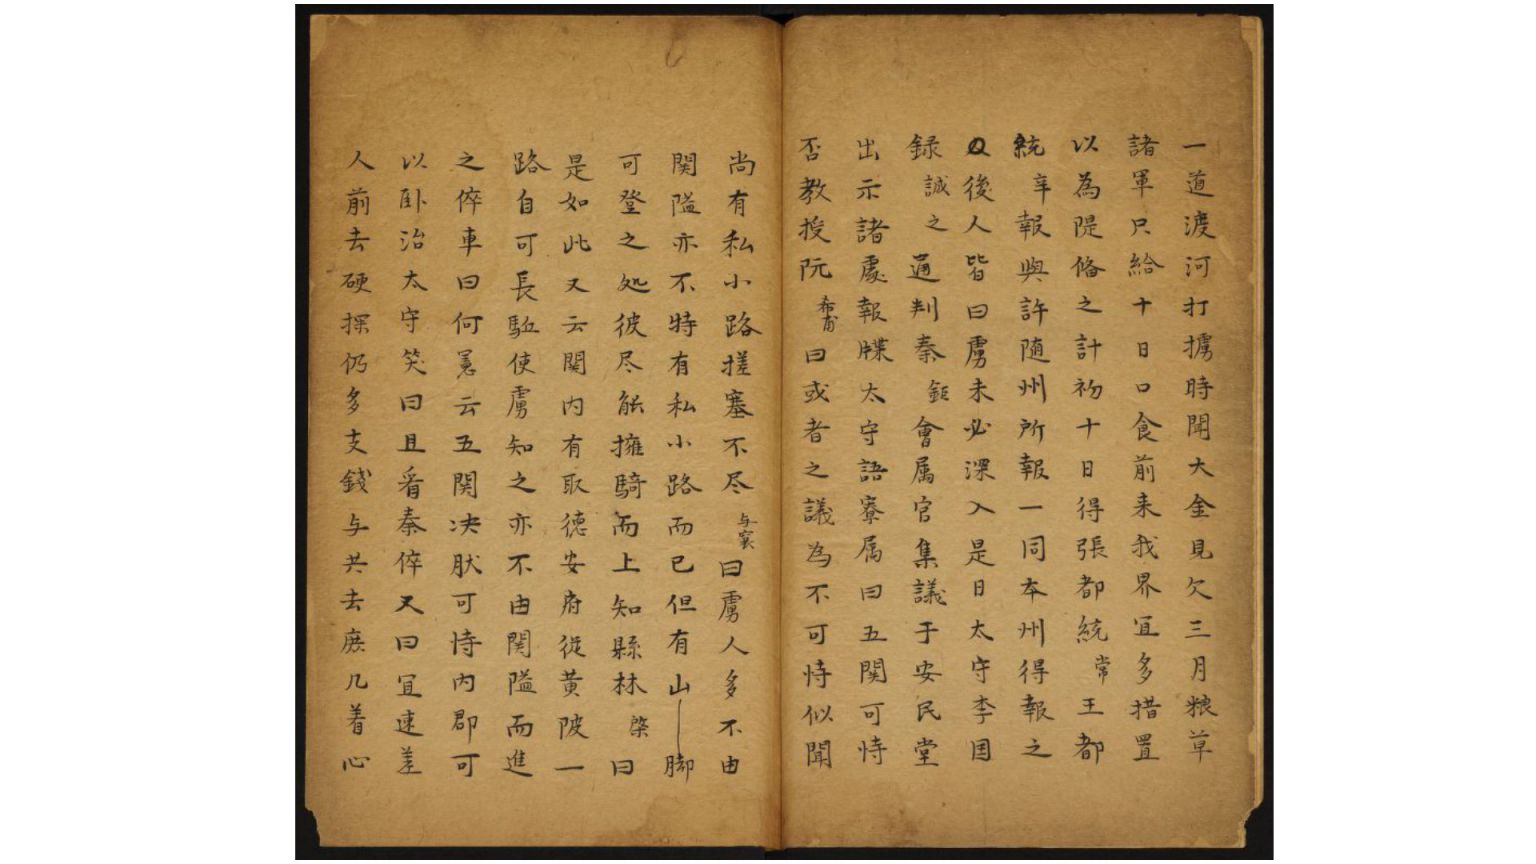 一道渡河打擄時聞大金見欠三月粮草
諸軍只給十日口食前来我界宜多措置
以為隄俻之計初十日得張都統常王都
統辛報與許随州所報一同本州得報之
後人皆曰虜未必深入是日太守李国
録誠之通判秦鉅會属官集議于安民堂
出示諸處報牒太守語寮属曰五関可恃
否教授阮希甫曰或者之議為不可恃似聞
尚有私小路搓塞不尽与寰曰虜人多不由
関隘亦不特有私小路而已但有山脚
可登之処彼尽能擁騎而上知縣林棨曰
是如此又云関内有取徳安府従黄陂一
路自可長駈使虜知之亦不由関隘而進
之倅車曰何冕云五関决肰可恃内郡可
以卧治太守笑曰且看秦倅又曰宜速差
人前去硬探仍多支錢与共去庻几着心